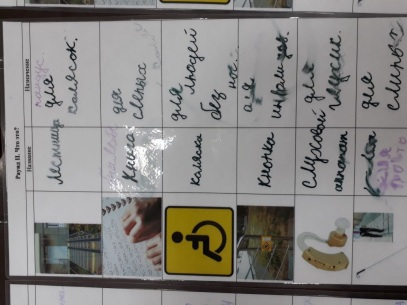 Раунд II. Что это?
Название
Назначение
Лестница
для
колясок.
Книга
для
слепых
коляска
для
людей
без ног.
кнопка
для
инвалидов
Слуховой
аппарат
для
глухих.
для
слепых